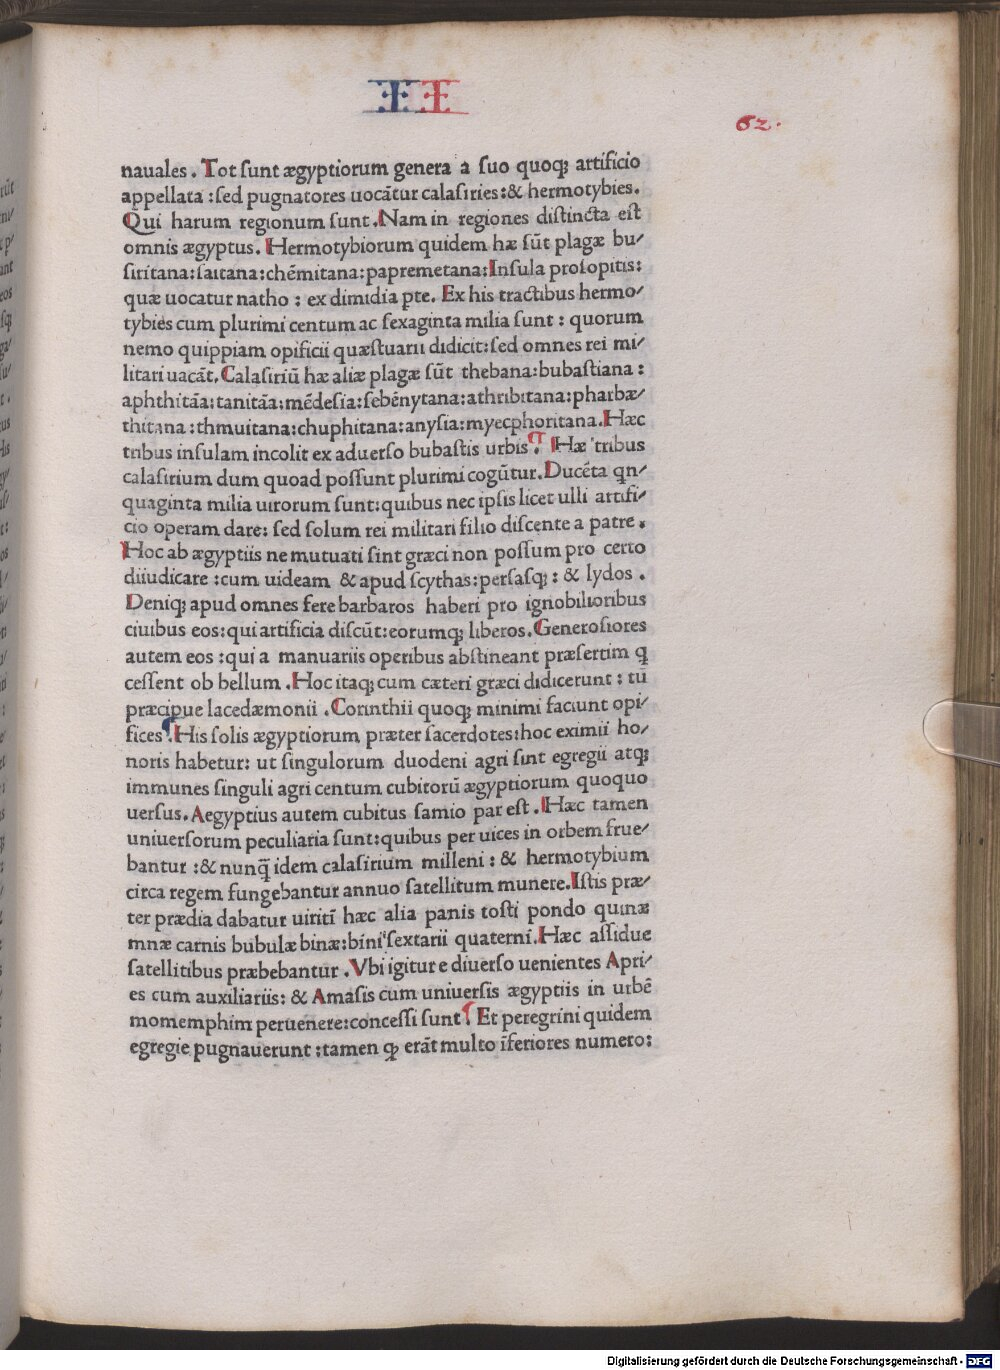 II
62.
nauales . Tot sunt ægyptiorum genera a suo quoqꝫ artificio
appellata : sed pugnatores uocãtur calasiries : & hermotybies.
Qui harum regionum sunt . Nam in regiones distincta est
omnis ægyptus. Hermotybiorum quidem hæ sũt plagæ bu/
siritana : saitana : chẽmitana : papremetana : Insula prosopitis:
quæ uocatur natho : ex dimidia pte. Ex his tractibus hermo/
tybies cum plurimi centum ac sexaginta milia sunt : quorum
nemo quippiam opificii quæstuarii didicit : sed omnes rei mi/
litari uacãt. Calasiriũ hæ aliæ plagæ sũt thebana : bubastiana :
aphthitãa : tanitãa : mẽdesia : sebẽnytana : athribitana : pharbæ/
thitana : thmuitana : chuphitana : anysia : myecphoritana. Hæc
tribus insulam incolit ex aduerso bubastis urbis . Hæ tribus
calasirium dum quoad possunt plurimi cogũtur. Ducẽta qn/
quaginta milia uirorum sunt : quibus nec ipsis licet ulli artifi/
cio operam dare : sed solum rei militari filio discente a patre .
Hoc ab ægyptiis ne mutuati sint græci non possum pro certo
diiudicare : cum uideam & apud scythas : persasqꝫ : & lydos .
Deniqꝫ apud omnes fere barbaros haberi pro ignobilioribus
ciuibus eos : qui artificia discũt : eorumqꝫ liberos. Generosiores
autem eos : qui a manuariis operibus abstineant præsertim q̃
cessent ob bellum . Hoc itaqꝫ cum cæteri græci didicerunt : tũ
præcipue lacedæmonii . Corinthii quoqꝫ minimi faciunt opi/
fices . His solis ægyptiorum præter sacerdotes : hoc eximii ho/
noris habetur : ut singulorum duodeni agri sint egregii atqꝫ
immunes singuli agri centum cubitorũ ægyptiorum quoquo
uersus. Aegyptius autem cubitus samio par est . Hæc tamen
uniuersorum peculiaria sunt : quibus per uices in orbem frue/
bantur : & nunq̃ idem calasirium milleni : & hermotybium
circa regem fungebantur annuo satellitum munere. Istis præ/
ter prædia dabatur uiritĩ hæc alia panis tosti pondo quinæ
mnæ carnis bubulæ binæ : bini sextarii quaterni. Hæc assidue
satellitibus præbebantur . Vbi igitur e diuerso uenientes Apri/
es cum auxiliariis : & Amasis cum uniuersis ægyptiis in urbẽ
momemphim peruenere : concessi sunt . Et peregrini quidem
egregie pugnauerunt : tamen ꝙ erãt multo ĩferiores numero:
Digitalisierung gefördert durch die Deutsche Forschungsgemeinschaft - DFG